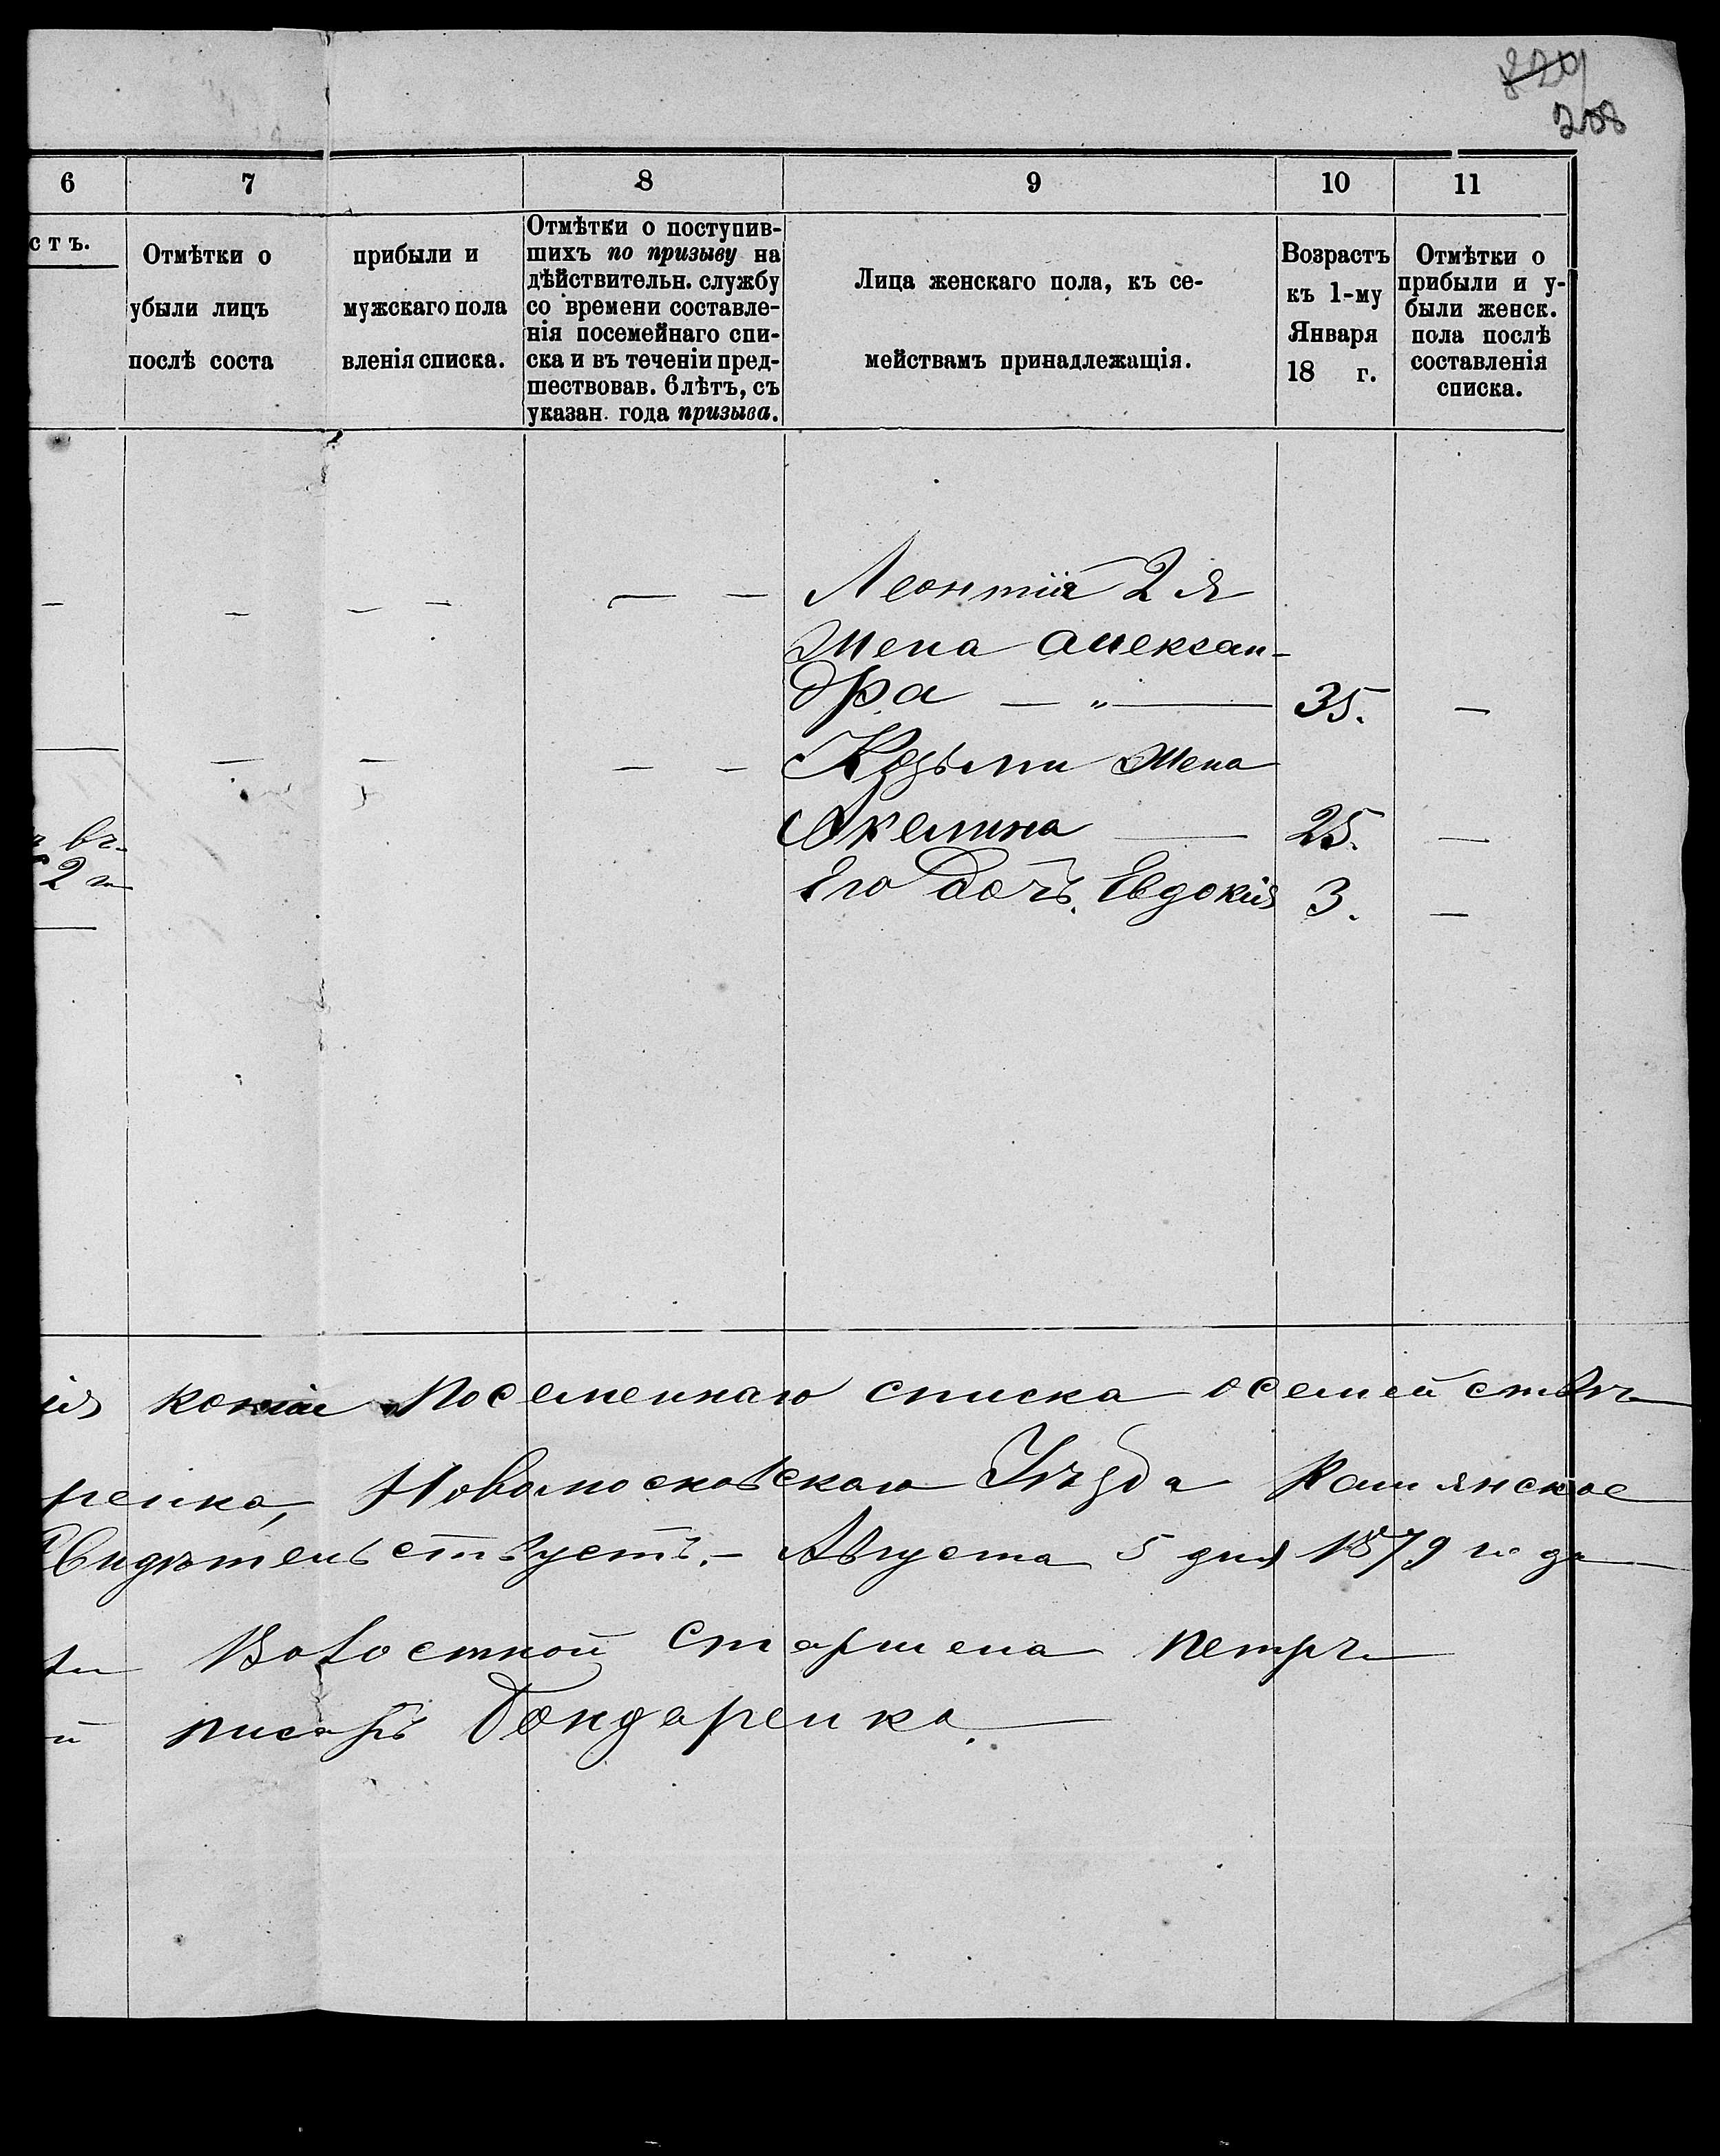 829
208
6 7 8 9 10 11
стъ.
Отмѣтки о прибыли и
убыли лицъ мужскаго пола
послѣ соста вленія списка.
Отмѣтки о поступив-
шихъ по призыву на
дѣйствительн. службу
со времени составле-
нія посемейнаго спи-
ска и въ теченіи пред-
шествовав. 6 лѣтъ, съ
указан. года призыва.
Лица женскаго пола, къ се-
мействамъ принадлежащія.
Возрастъ
къ 1-му
Января
18 г.
Отмѣтки о
прибыли и у-
были женск.
пола послѣ
составленія
списка.
— — — — — — Леонтія 2 я
Жена Алексан-
дра — „ — 35. —
— — — — Козьми Жена
Акелина — 25. —
2
Его Дочь Евдокія 3. —
ія копіи посемейнаго списка о семействѣ
ренка, Новомосковскаго Уѣзда
Свидѣтельствуетъ. — Августа 5 дня 1879 года
Волостной Старшена Петръ
й писарь Бондаренко.